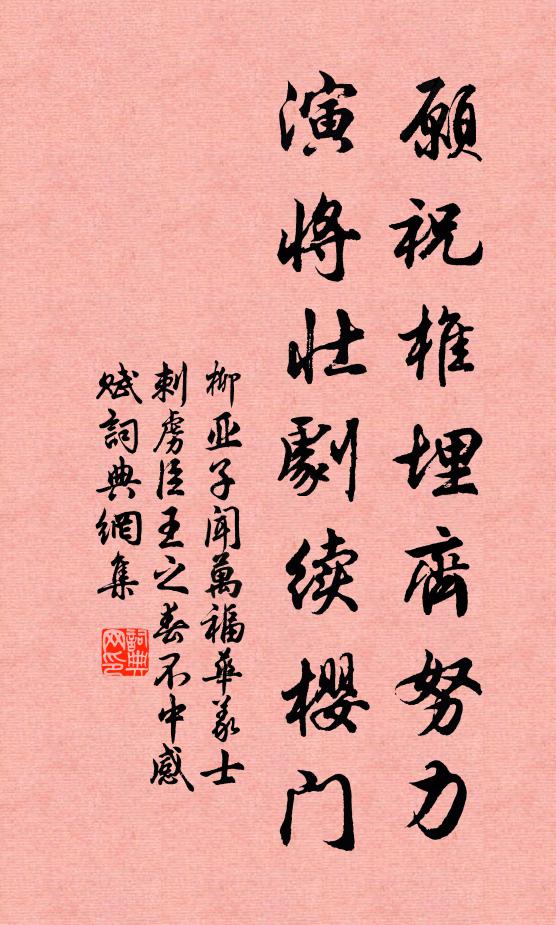 願祝椎埋齊努力
演將壯劇續櫻门
柳亚子聞萬福華義士
刺虜臣王之春不中感
賦詞典網集
詞典
网印